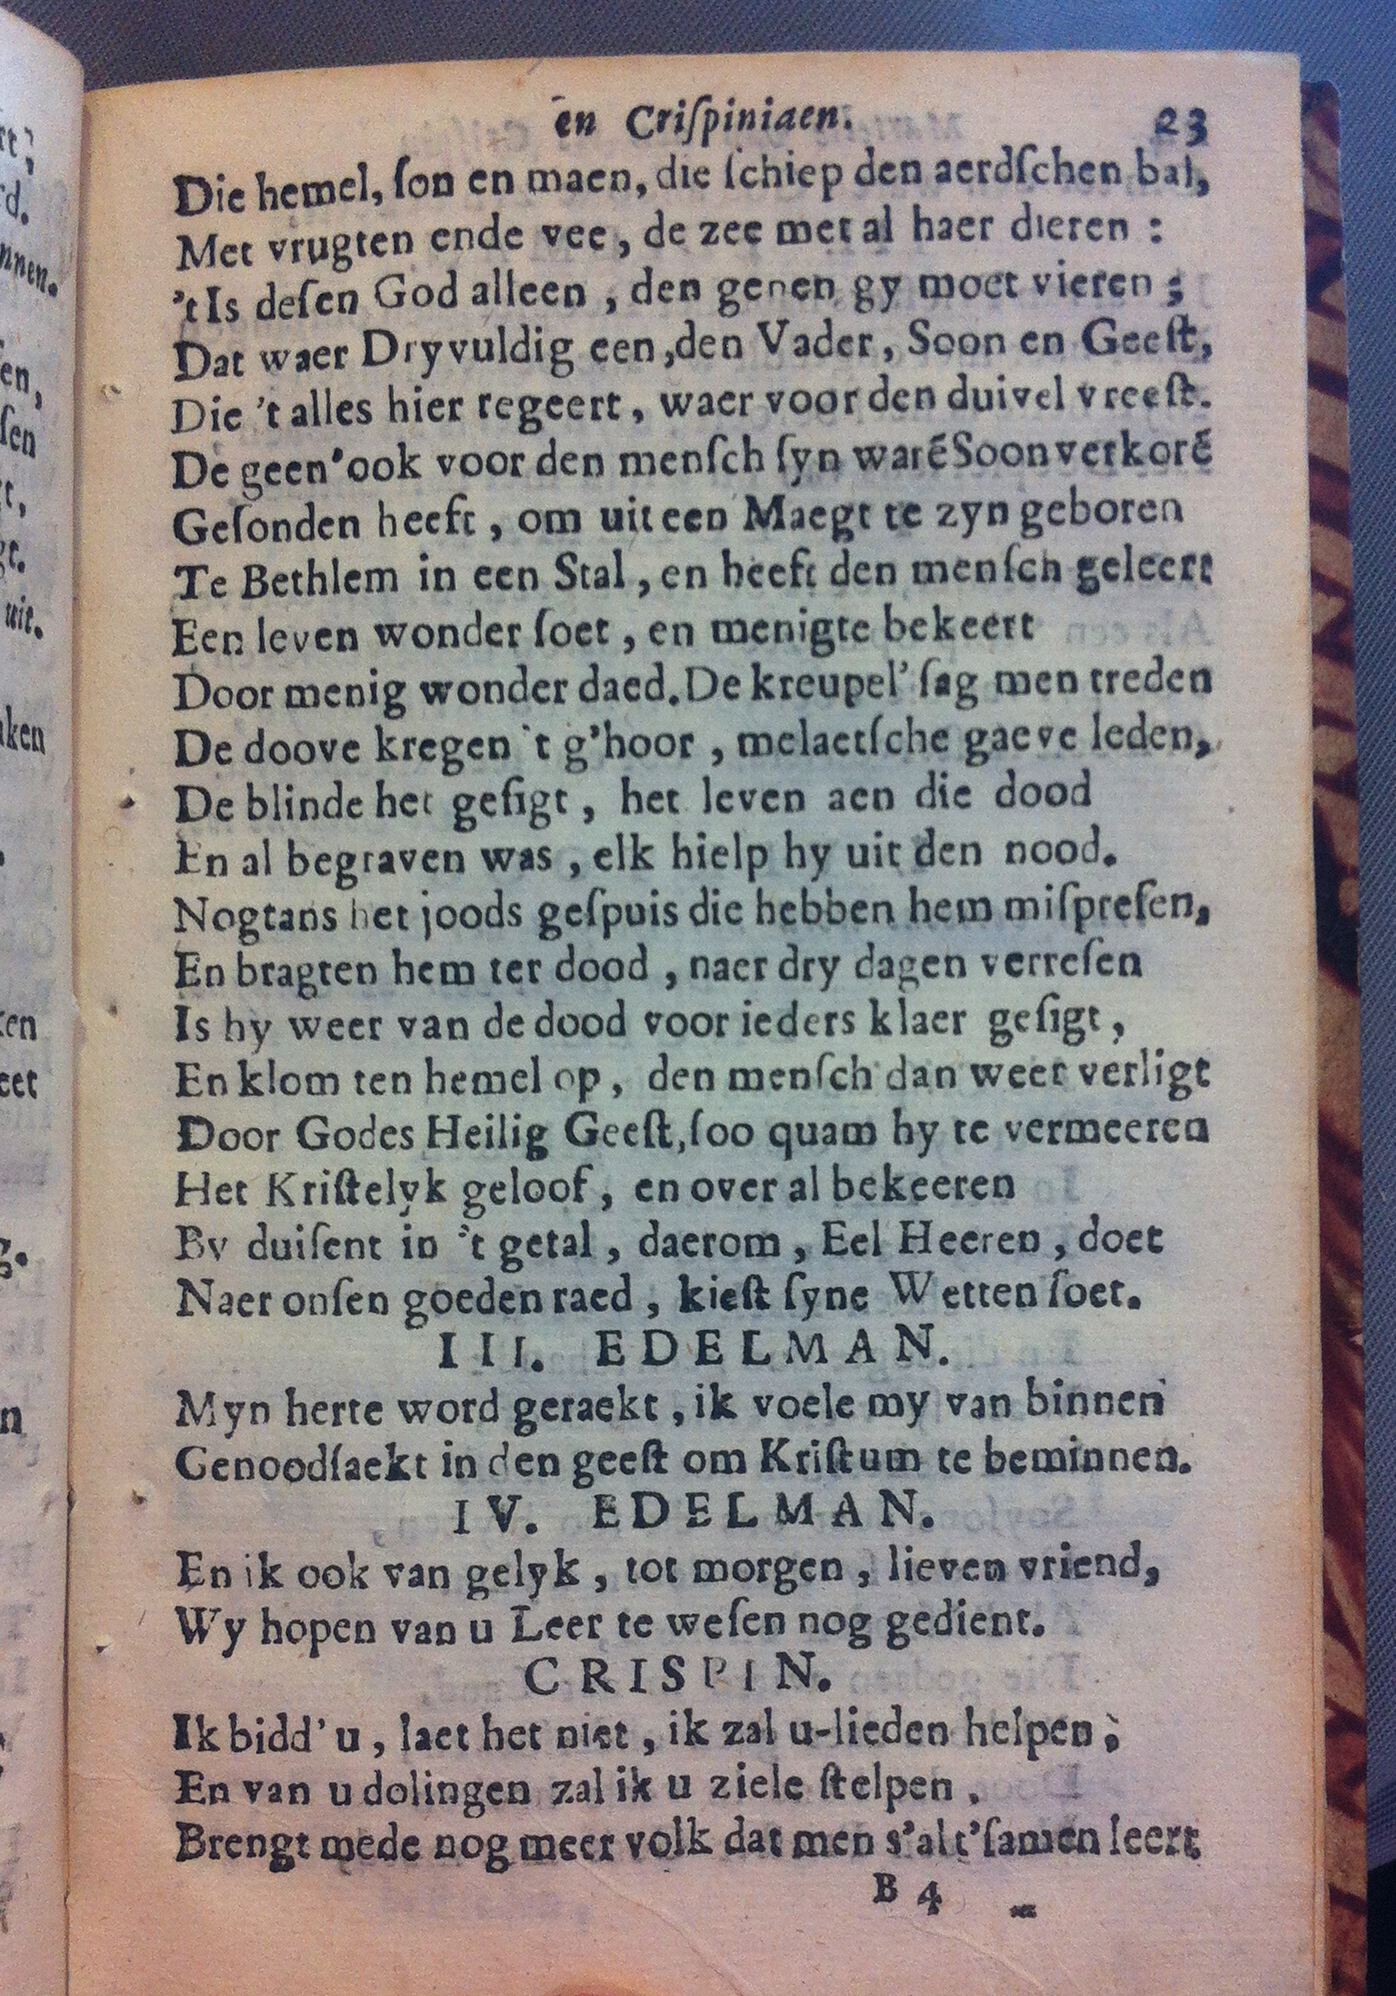 en Criſpiniaen. 23
Die hemel, ſon en maen, die ſchiep den aerdſchen bal,
Met vrugten ende vee, de zee met al haer dieren :
't Is deſen God alleen, den genen gy moet vieren ;
Dat waer Dryvuldig een, den Vader, Soon en Geeſt,
Die 't alles hier regeert, waer voor den duivel vreeſt.
De geen' ook voor den menſch ſyn warē Soon verkorē
Geſonden heeft, om uit een Maegt te zyn geboren
Te Bethlem in een Stal, en heeft den menſch geleert
Een leven wonder ſoet, en menigte bekeert
Door menig wonder daed. De kreupel' ſag men treden
De doove kregen 't g'hoor, melaetſche gaeve leden,
De blinde het geſigt, het leven aen die dood
En al begraven was, elk hielp hy uit den nood.
Nogtans het joods geſpuis die hebben hem miſpreſen,
En bragten hem ter dood, naer dry dagen verreſen
Is hy weer van de dood voor ieders klaer geſigt,
En klom ten hemel op, den menſch dan weer verligt
Door Godes Heilig Geeſt, ſoo quam hy te vermeeren
Het Kriſtelyk geloof, en over al bekeeren
By duiſent in 't getal, daerom, Eel Heeren, doet
Naer onſen goeden raed, kieſt ſyne Wetten ſoet.
III. EDELMAN.
Myn herte word geraekt, ik voele my van binnen
Genoodſaekt in den geeſt om Kriſtum te beminnen.
IV. EDELMAN.
En ik ook van gelyk, tot morgen, lieven vriend,
Wy hopen van u Leer te weſen nog gedient.
CRISPIN.
Ik bidd' u, laet het niet, ik zal u-lieden helpen,
En van u dolingen zal ik u ziele ſtelpen.
Brengt mede nog meer volk dat men s'al t'ſamen leert
B 4